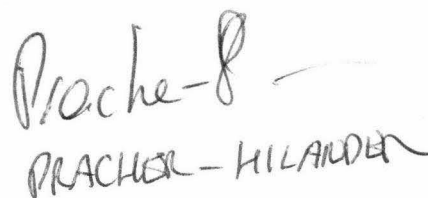 Prache-8
PRACHER-HILANDER